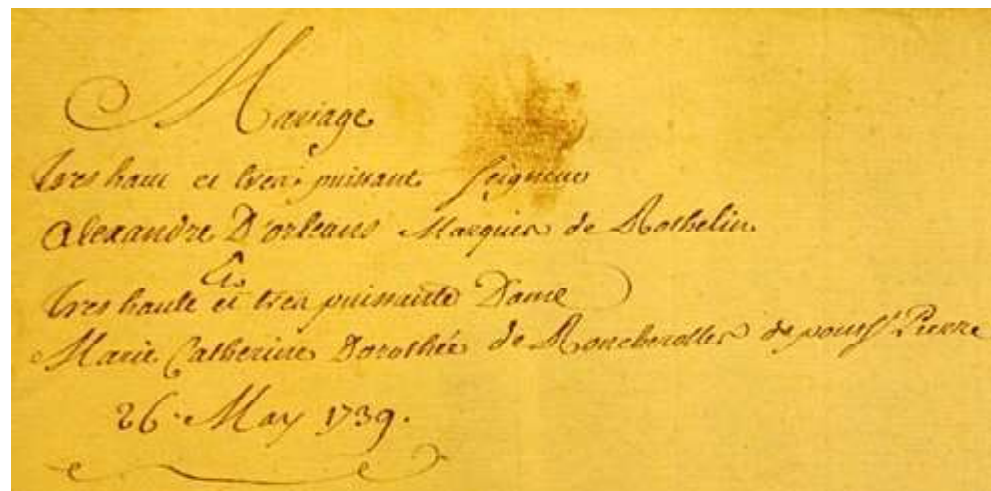 Mariage
Tres haut et tres puissant Seigneur
Alexandre D'orleans Marquis de Rothelin.
Et
Tres haute et tres puissante Dame
Marie Catherine Dorothée de Roncherolles de pont St Pierre
26 May 1739.